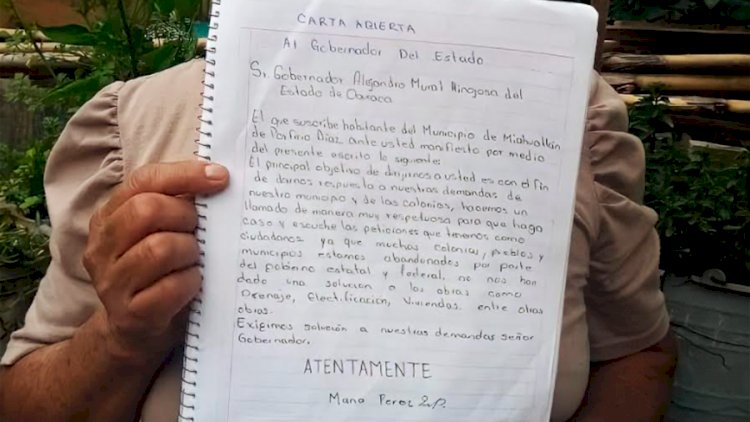 CARTA ABIERTA
Al Gobernador Del Estado
Sr. Gobernador Alejandro Mural Hinojosa del
Estado de Oaxaca
El que suscribe habitante del Municipio de Miahuatlán
de Porfirio Díaz ante usted manifiesto por medio
del presente escrito lo siguiente:
El principal objetivo de dirijirnos a usted es con el fin
de darnos respuesta a nuestras demandas de
nuestro municipio y de las colonias, hacemos un
llamado de manera muy respetuosa para que haga
caso y escuche las peticiones que tenemos como
ciudadanos ya que muchas colonias, pueblos y
municipios estamos abandonados por parte
del gobierno estatal y federal. no nos han
dado una solucion a las obras como
Drenaje, Electrificacion, Viviendas. entre otras
obras.
Exigimos solución a nuestras demandas señor
Gobernador.
ATENTAMENTE
Perez